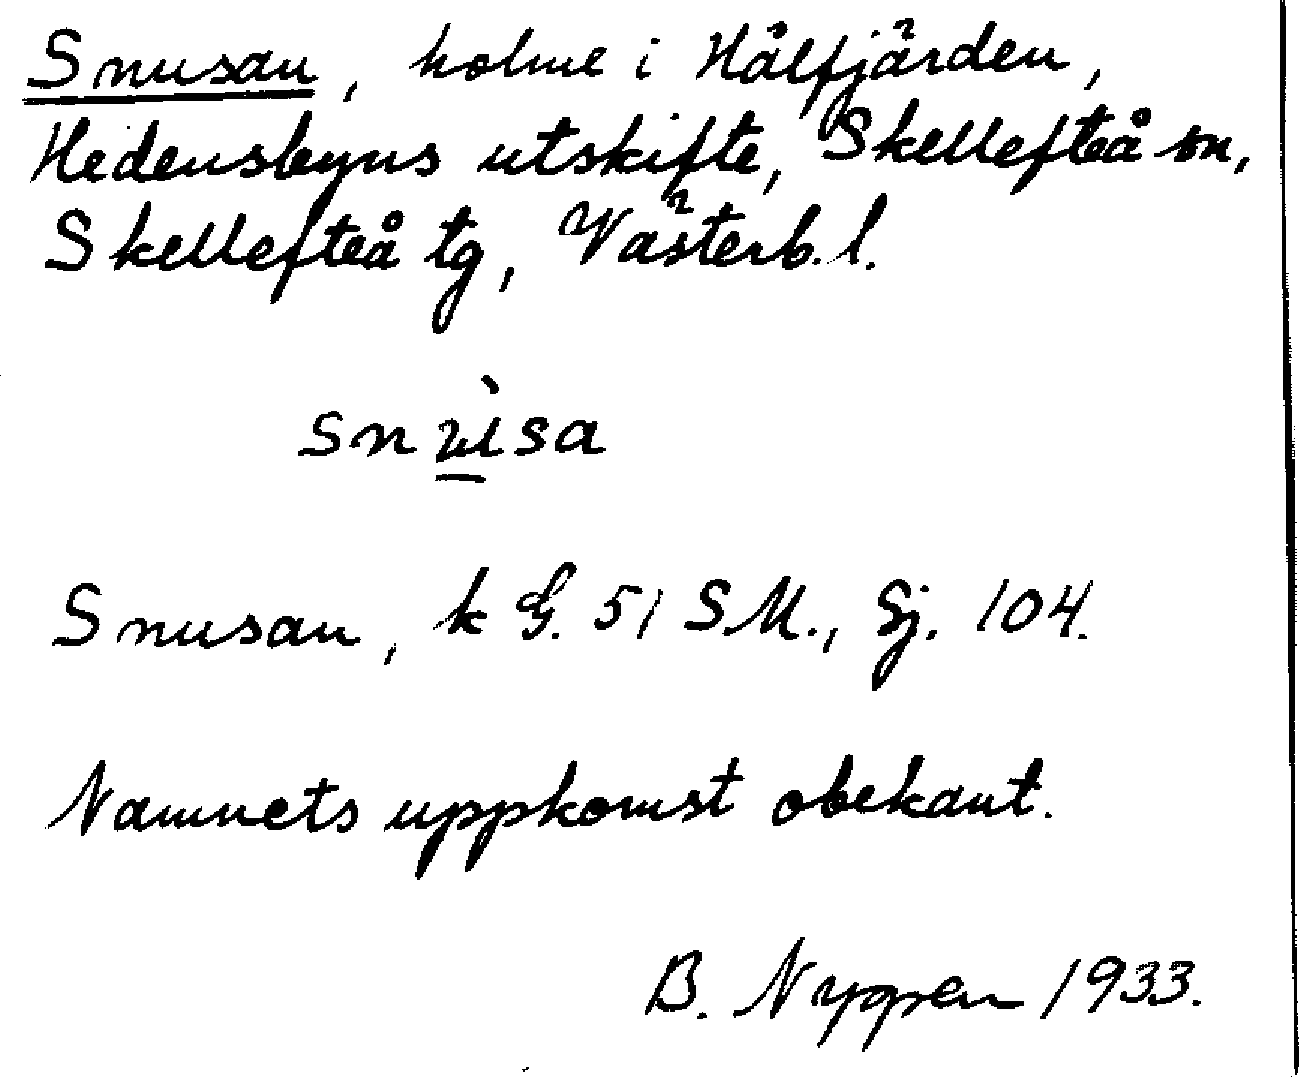 Snusan, holme i Hålfjärden,
Hedensbyns utskifte, Skellefteå sn,
Skellefteå tg, Västerb. l.
snùsa
Snusan, k G. 51 SM., Sj. 104.
Namnets uppkomst obekant.
B. Nygren 1933.